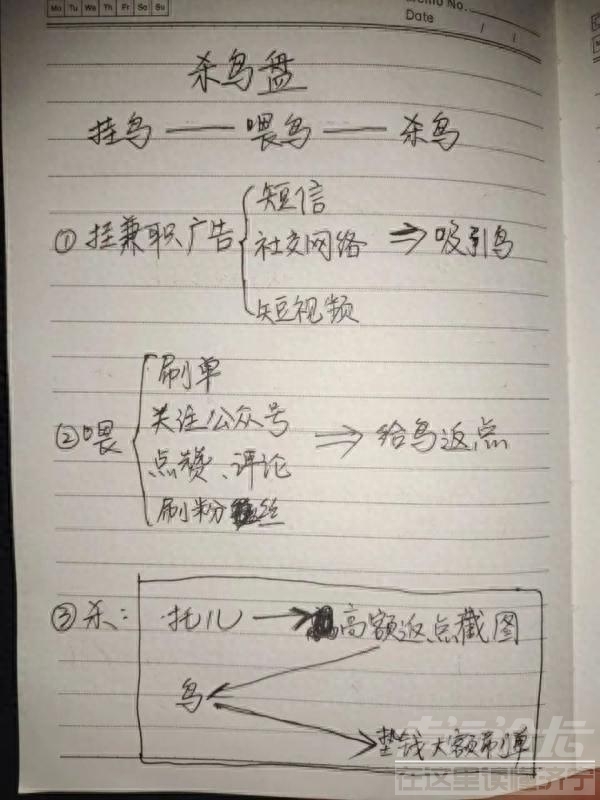 Mo Tu We Th Fr Sa Su
Memo No.
Date / /
杀鸟盘
挂鸟 — 喂鸟 — 杀鸟
短信
①挂兼职广告 社交网络 ⇒ 吸引鸟
短视频
刷单
关注公众号
②喂 ⇒ 给鸟返点
点赞、评论
刷粉丝
③杀: 托儿 → 高额返点截图
鸟
垫钱大额刷单
在这里读懂济宁